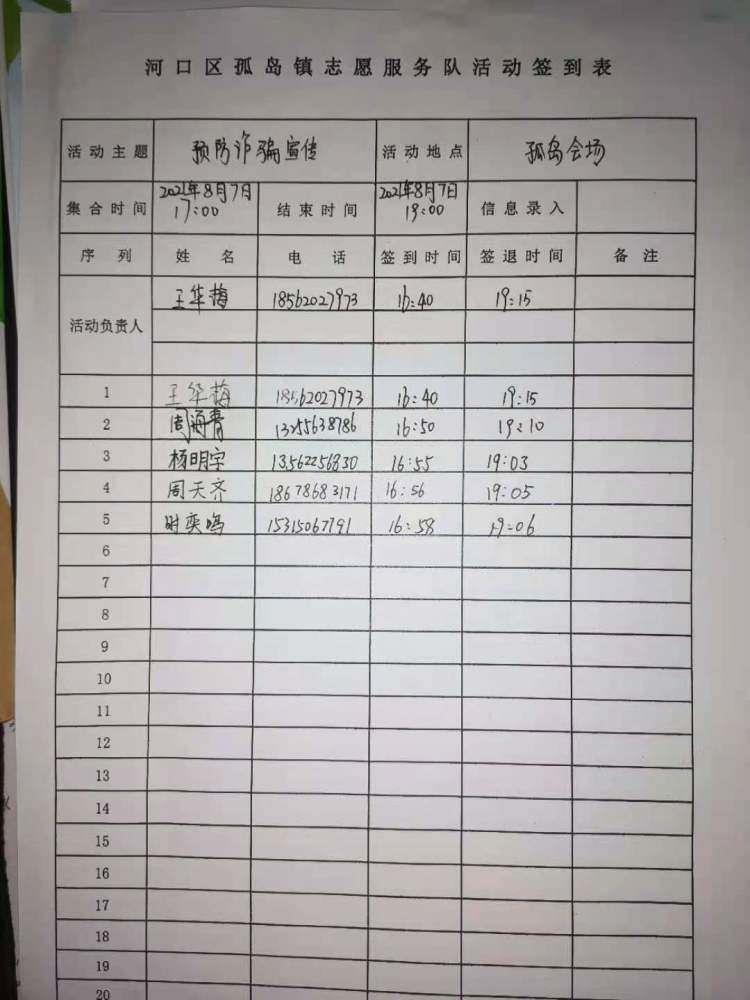 河口区孤岛镇志愿服务队活动签到表
活动主题 预防诈骗宣传 活动地点 孤岛会场
集合时间 2021年8月7日 17:00 结束时间 2021年8月7日 19:00 信息录入
序列 姓名 电话 签到时间 签退时间 备注
活动负责人 王华梅 18562027973 16:40 19:15
1 王华梅 18562027973 16:40 19:15
2 周海青 13255638786 16:50 19:10
3 杨明宇 13562256830 16:55 19:03
4 周天齐 18678683171 16:56 19:05
5 时奕鸣 15315067791 16:58 19:06
6
7
8
9
10
11
12
13
14
15
16
17
18
19
20